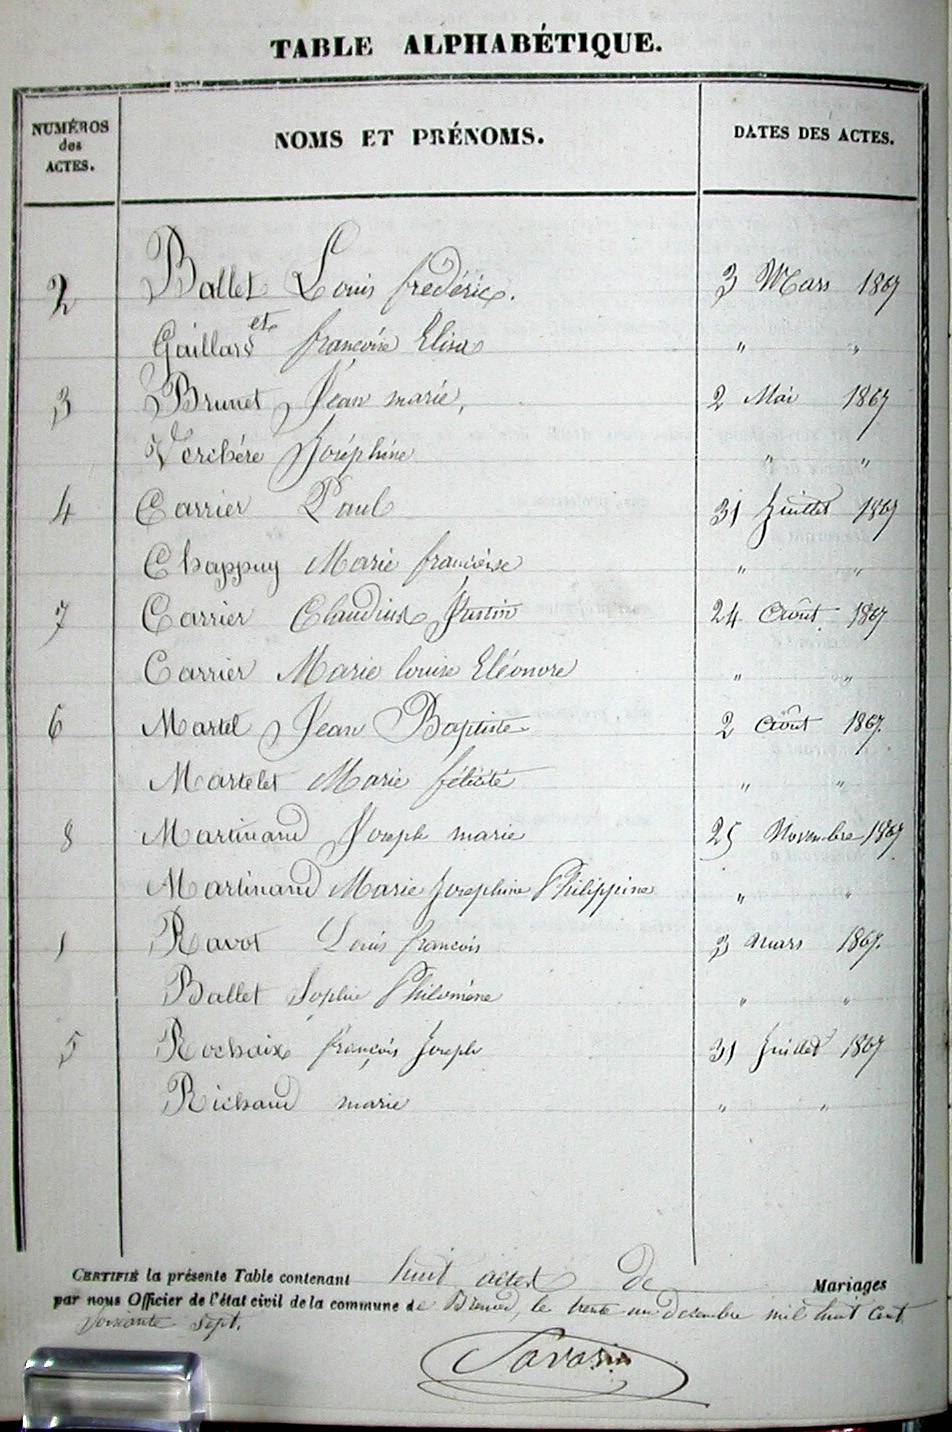 TABLE ALPHABÉTIQUE.
NUMÉROS des ACTES. NOMS ET PRÉNOMS. DATES DES ACTES.
2 Ballet Louis frédéric. 3 Mars 1867
et
Gaillard françoise Elisa " "
3 Brunet Jean marie, 2 Mai 1867
Verchére Joséphine " "
4 Carrier Paul 31 Juillet 1867
Chappuy Marie francoise " "
7 Carrier Claudius Justin 24 Août 1867
Carrier Marie louise Eléonore " "
6 Martel Jean Baptiste 2 Août 1867.
Martelet Marie félicité " "
8 Martinand Joseph marie 25 Novembre 1867
Martinand Marie Josephine Philippine " "
1 Ravot Louis francois 3 mars 1867.
Ballet Sophie Philomène " "
5 Rochaix françois Joseph 31 Juillet 1867
Richaud marie " "
CERTIFIÉ la présente Table contenant huit actes de Mariages
par nous Officier de l'état civil de la commune de le trente un décembre mil huit cent
soixante sept.
Savarin